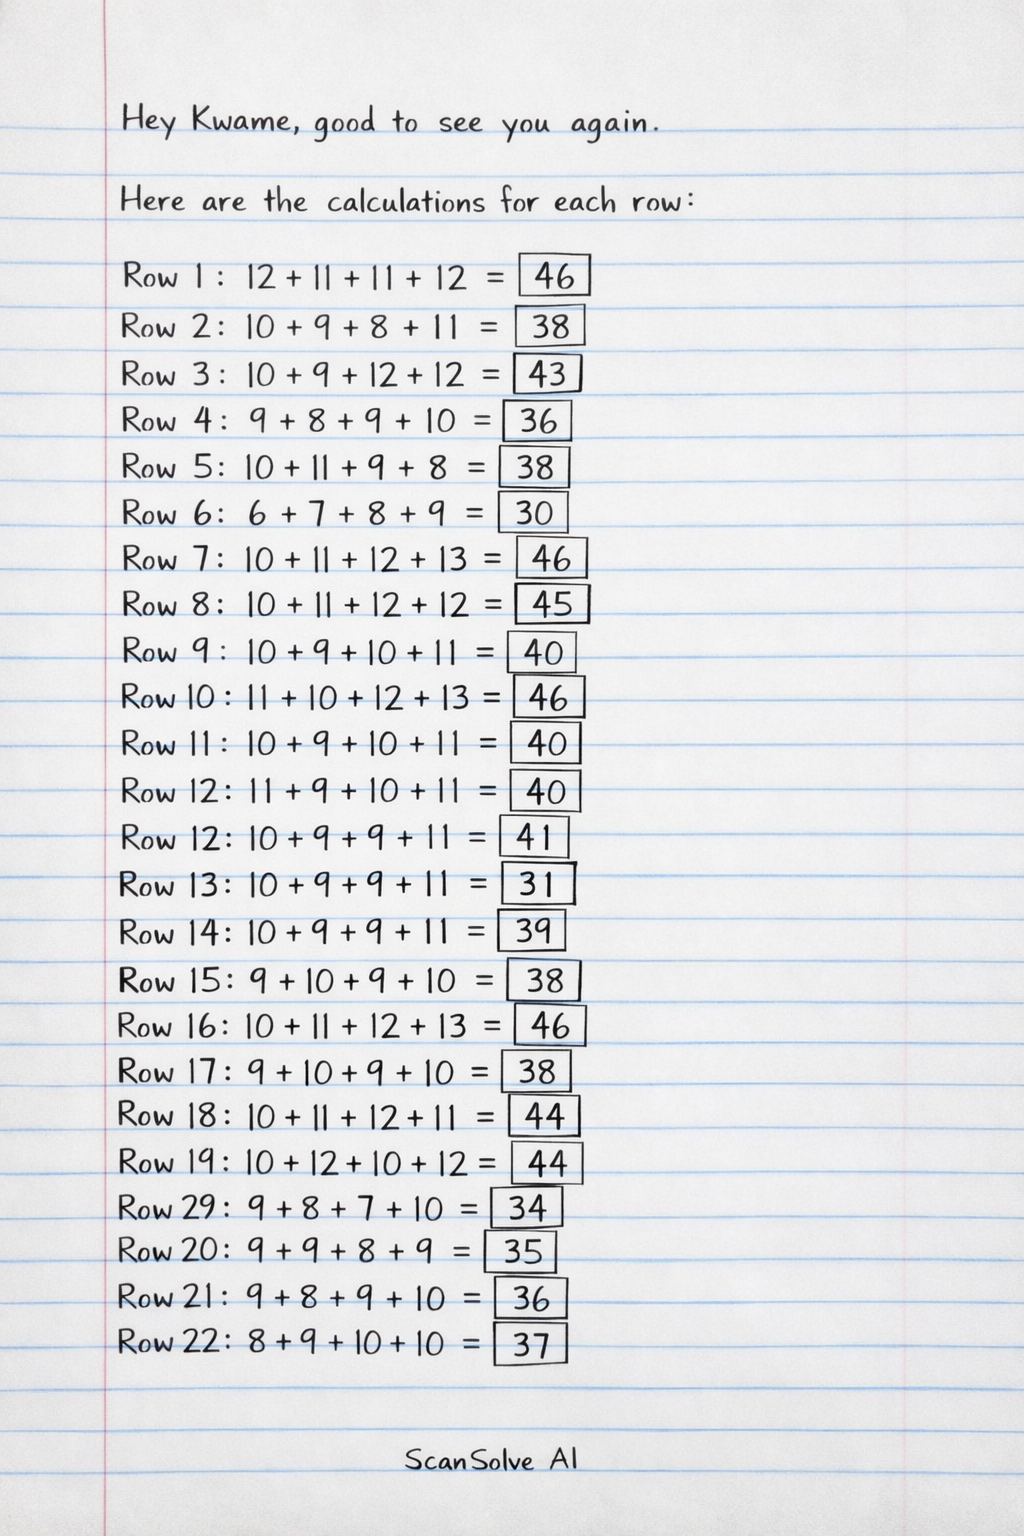 Hey Kwame, good to see you again.
Here are the calculations for each row:
Row 1: 12 + 11 + 11 + 12 = 46
Row 2: 10 + 9 + 8 + 11 = 38
Row 3: 10 + 9 + 12 + 12 = 43
Row 4: 9 + 8 + 9 + 10 = 36
Row 5: 10 + 11 + 9 + 8 = 38
Row 6: 6 + 7 + 8 + 9 = 30
Row 7: 10 + 11 + 12 + 13 = 46
Row 8: 10 + 11 + 12 + 12 = 45
Row 9: 10 + 9 + 10 + 11 = 40
Row 10: 11 + 10 + 12 + 13 = 46
Row 11: 10 + 9 + 10 + 11 = 40
Row 12: 11 + 9 + 10 + 11 = 40
Row 12: 10 + 9 + 9 + 11 = 41
Row 13: 10 + 9 + 9 + 11 = 31
Row 14: 10 + 9 + 9 + 11 = 39
Row 15: 9 + 10 + 9 + 10 = 38
Row 16: 10 + 11 + 12 + 13 = 46
Row 17: 9 + 10 + 9 + 10 = 38
Row 18: 10 + 11 + 12 + 11 = 44
Row 19: 10 + 12 + 10 + 12 = 44
Row 29: 9 + 8 + 7 + 10 = 34
Row 20: 9 + 9 + 8 + 9 = 35
Row 21: 9 + 8 + 9 + 10 = 36
Row 22: 8 + 9 + 10 + 10 = 37
ScanSolve AI